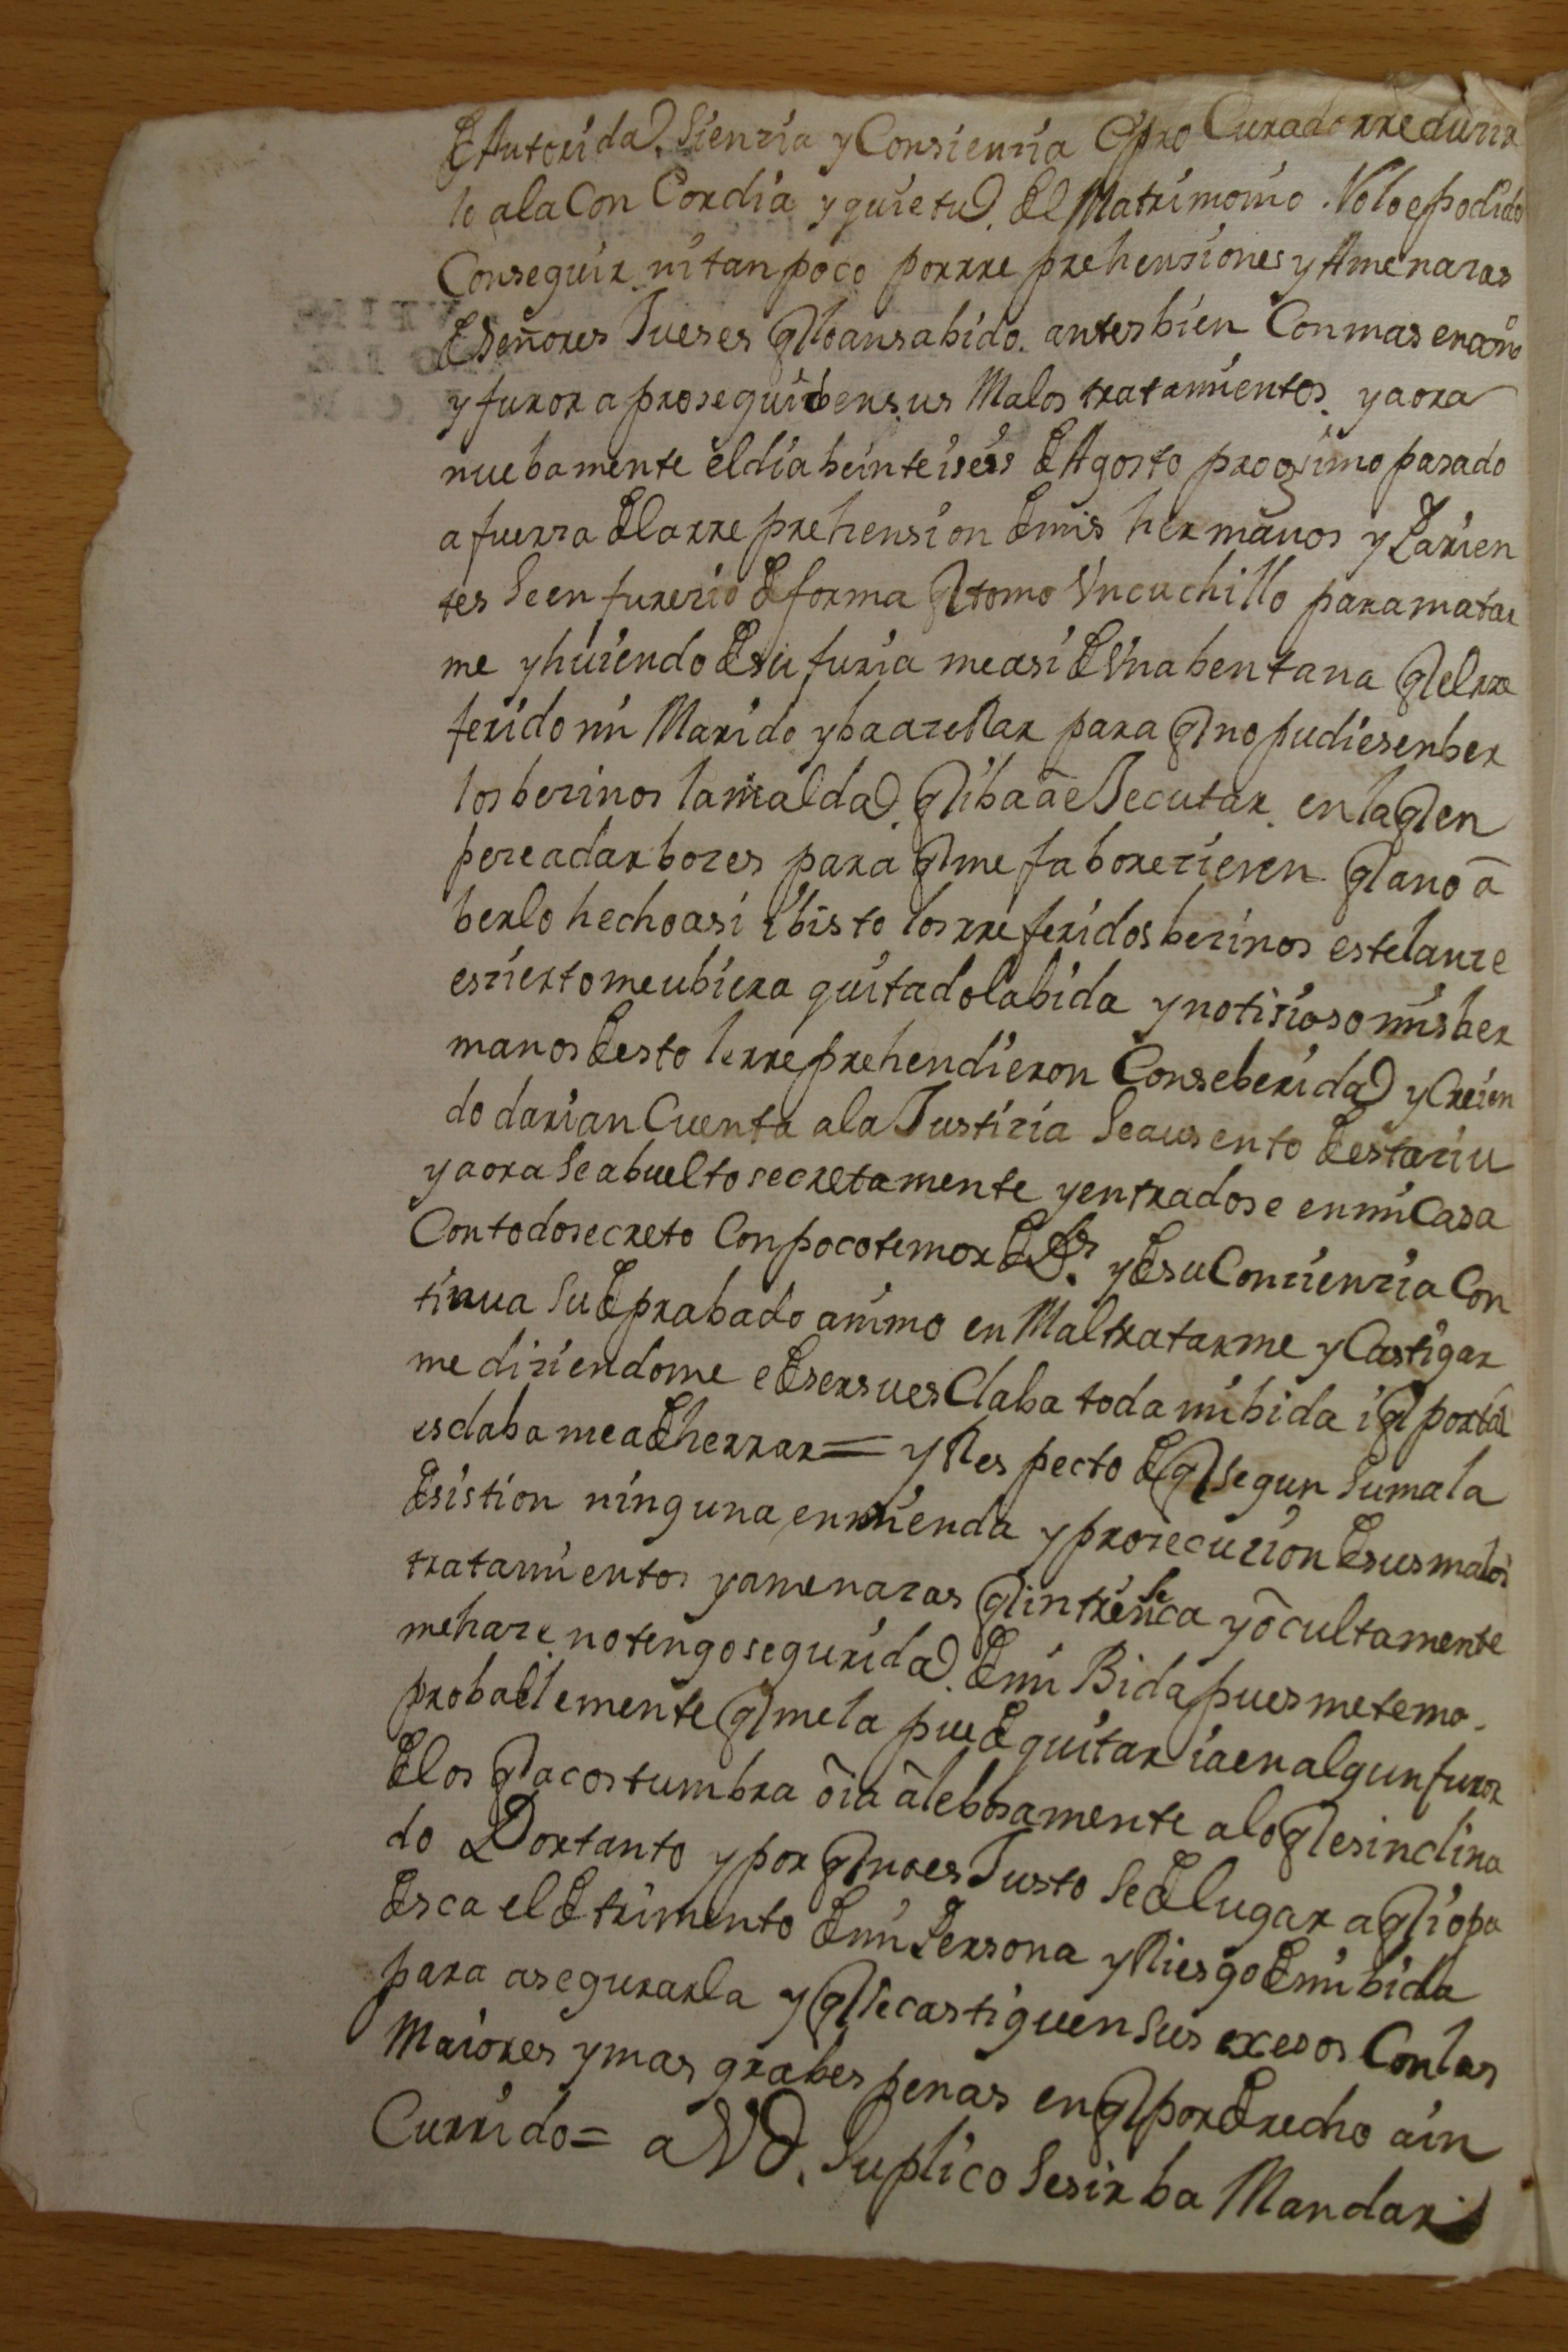 de Autoridad. Siensia y Consiensia e procurado rredusir
lo a la Con Cordia y quietud. del Matrimonio. No lo e podido
Conseguir ni tan poco por rre prehensiones y Amenasas
de señores Jueses q lo an sabido. antes bien Con mas encono
y furor a proseguido en sus Malos tratamientos. y aora
nuebamente el dia beinte i seis de Agosto progsimo pasado
a fuersa de la rre prehension de mis hermanos y Parien
tes Se en furesio de forma q tomo Un cuchillo para matar
me y huiendo de su furia me asi de Una bentana q el rre
ferido mi Marido yba a serrar para q no pudiesen ber
los besinos la maldad. q iba a eJecutar. en la q en
pese a dar boses para q me faboresiesen q a no a
berlo hecho asi i bisto los rre feridos besinos este lanse
es sierto me ubiera quitado la bida y notisioso mis her
manos de esto le rre prehendieron Con seberidad y Creien
do darian Cuenta a la Justisia Se ausento de esta siu
y aora Se a buelto secretamente y entradose en mi Casa
Con todo secreto Con poco temor de Ds. y de su Consiensia Con
tinua Su deprabado animo en Mal tratarme y Castigar
me disiendome e de ser su esClaba toda mi bida i q por tal
esclaba me a de herrar = y Respecto de q segun Su mala
desistion ninguna enmienda y prosecusion de sus malos
tratamientos y amenasas q intrinseca y ocultamente
me hase no tengo seguridad. de mi Bida pues me temo.
probablemente q me la puede quitar ia en algun furor
de los q acostumbra o ia alebosamente a lo q es inclina
do Por tanto y por q no es Justo Se de lugar a q io pa
desca el detrimento de mi Persona y Riesgo de mi bida
para asegurarla y q Se castiguen Sus exesos Con las
Maiores y mas grabes penas en q por derecho a in
Currido = a Vd. Suplico Se sirba Mandar